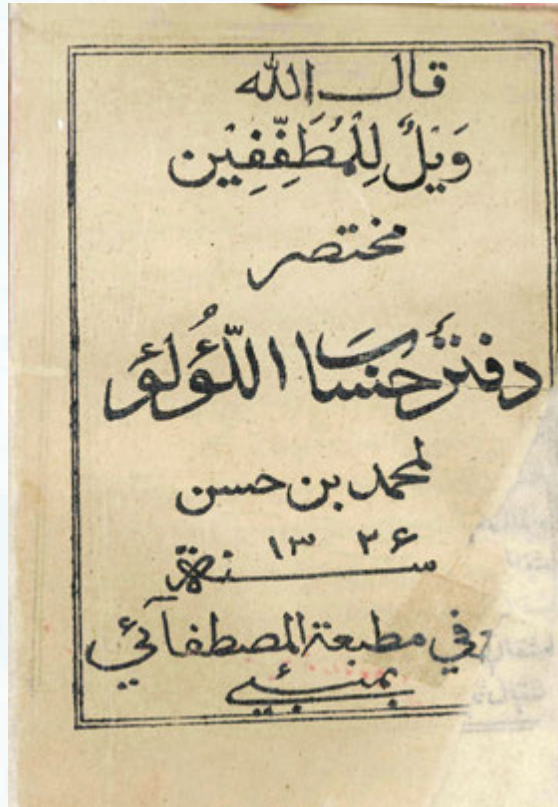 قال الله
وَيْلٌ لِلْمُطَفِّفِيْن
مختصر
دفتر حساب اللُؤلُؤ
لمحمد بن حسن
١٣٢۶
سنة
في مطبعة المصطفآئي
بمبئي